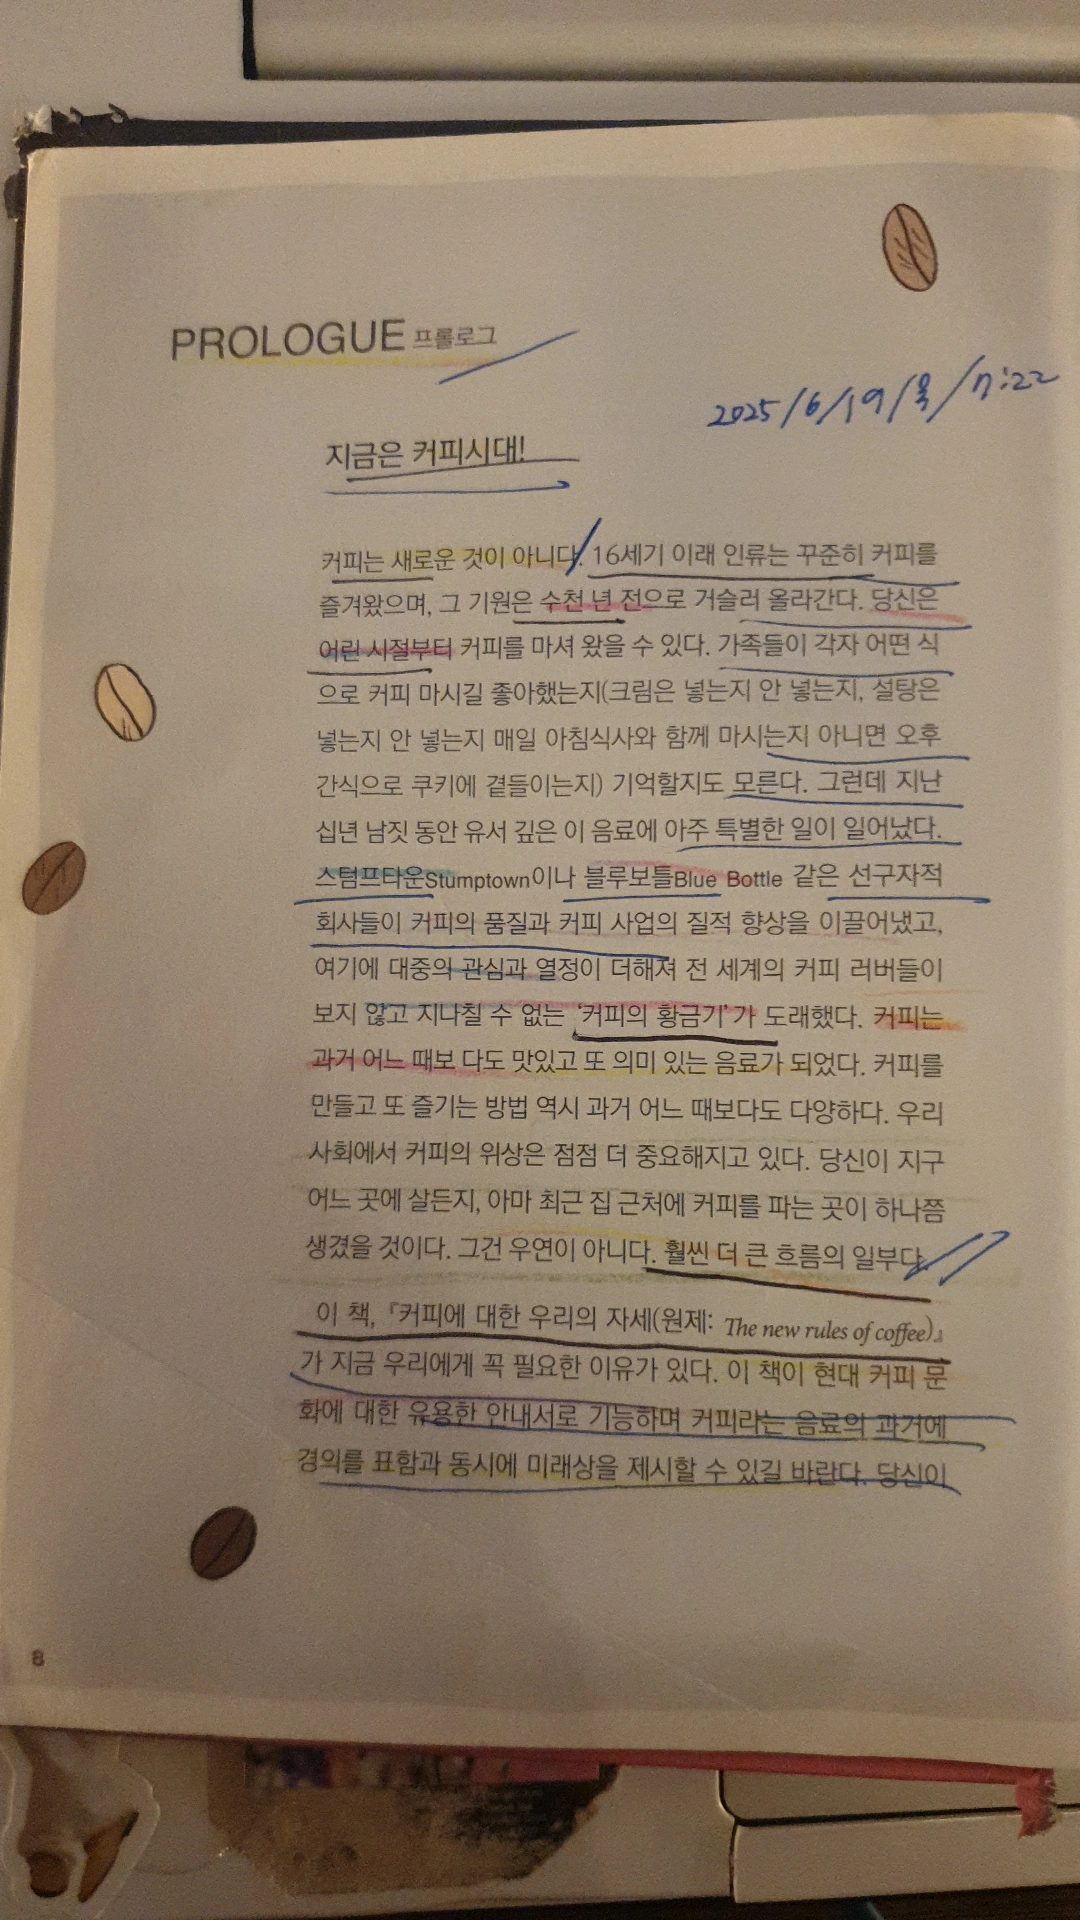 PROLOGUE 프롤로그
2025/6/19/목/17:22
지금은 커피시대!
커피는 새로운 것이 아니다. 16세기 이래 인류는 꾸준히 커피를
즐겨왔으며, 그 기원은 수천 년 전으로 거슬러 올라간다. 당신은
어린 시절부터 커피를 마셔 왔을 수 있다. 가족들이 각자 어떤 식
으로 커피 마시길 좋아했는지(크림은 넣는지 안 넣는지, 설탕은
넣는지 안 넣는지 매일 아침식사와 함께 마시는지 아니면 오후
간식으로 쿠키에 곁들이는지) 기억할지도 모른다. 그런데 지난
십년 남짓 동안 유서 깊은 이 음료에 아주 특별한 일이 일어났다.
스텀프타운Stumptown이나 블루보틀Blue Bottle 같은 선구자적
회사들이 커피의 품질과 커피 사업의 질적 향상을 이끌어냈고,
여기에 대중의 관심과 열정이 더해져 전 세계의 커피 러버들이
보지 않고 지나칠 수 없는 ‘커피의 황금기’가 도래했다. 커피는
과거 어느 때보다도 맛있고 또 의미 있는 음료가 되었다. 커피를
만들고 또 즐기는 방법 역시 과거 어느 때보다도 다양하다. 우리
사회에서 커피의 위상은 점점 더 중요해지고 있다. 당신이 지구
어느 곳에 살든지, 아마 최근 집 근처에 커피를 파는 곳이 하나쯤
생겼을 것이다. 그건 우연이 아니다. 훨씬 더 큰 흐름의 일부다.
이 책, 『커피에 대한 우리의 자세(원제: The new rules of coffee)』
가 지금 우리에게 꼭 필요한 이유가 있다. 이 책이 현대 커피 문
화에 대한 유용한 안내서로 기능하며 커피라는 음료의 과거에
경의를 표함과 동시에 미래상을 제시할 수 있길 바란다. 당신이
8